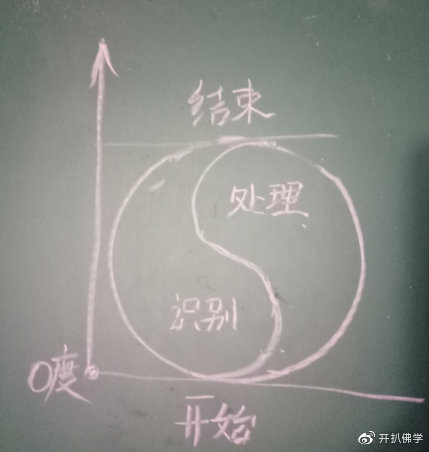 结束
处理
识别
0度
开始
开扒佛学